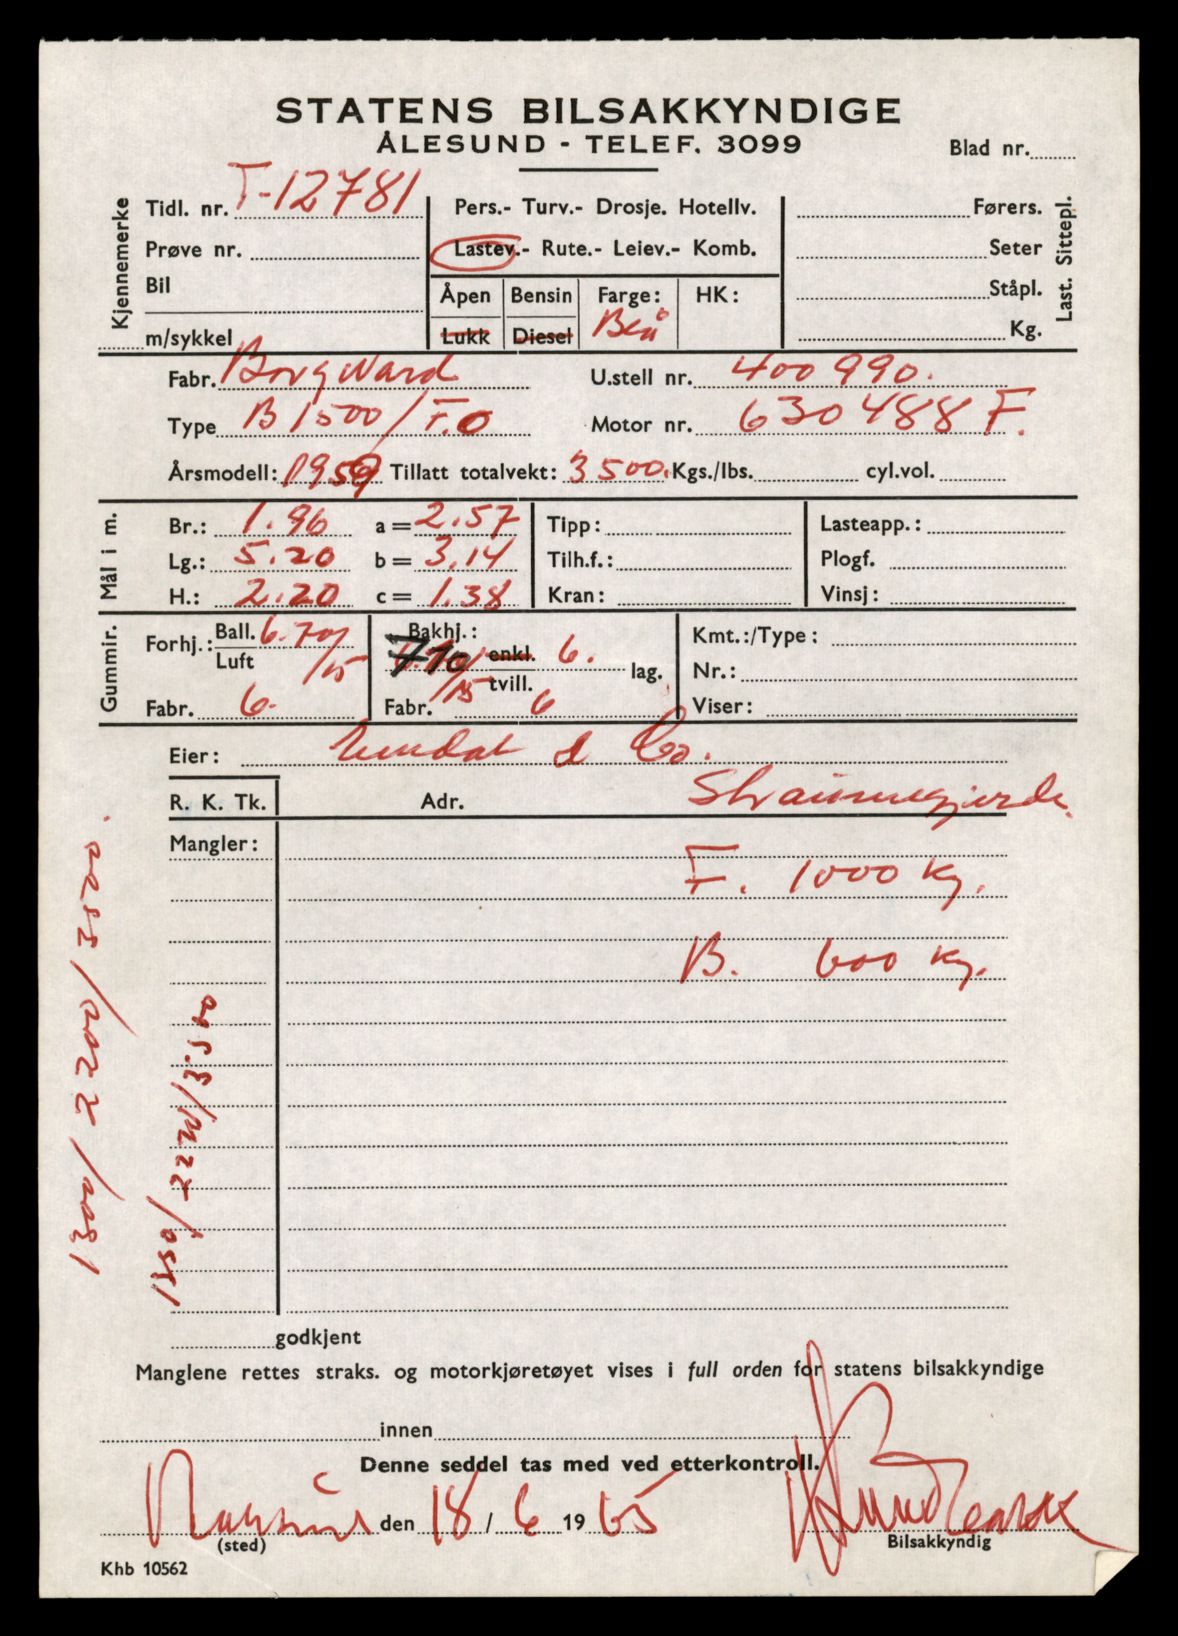 STATENS BILSAKKYNDIGE
ÅLESUND - TELEF. 3099
Blad nr.
Kjennemerke
Tidl. nr. T-12781
Prøve nr.
Bil
m/sykkel
Pers.- Turv.- Drosje. Hotellv.
Lastev.- Rute.- Leiev.- Komb.
Åpen Bensin Farge: HK:
Lukk Diesel Blå
Førers.
Seter
Ståpl.
Kg.
Last. Sittepl.
Fabr. Borgward U.stell nr. 400990.
Type B 1500/F.O Motor nr. 630488 F.
Årsmodell: 1959 Tillatt totalvekt: 3500. Kgs./lbs. cyl.vol.
Mål i m.
Br.: 1.96 a = 2.57 Tipp: Lasteapp.:
Lg.: 5.20 b = 3.14 Tilh.f.: Plogf.
H.: 2.20 c = 1.38 Kran: Vinsj:
Gummir.
Forhj.: Ball. 6.70/15
Luft
Fabr. 6.
Bakhj.: 710/15 enkl. 6. lag.
tvill.
Fabr. 6
Kmt.:/Type:
Nr.:
Viser:
Eier: & Co.
R. K. Tk. Adr. Straumegjerde.
Mangler:
F. 1000 kg.
B. 600 kg.
1300/2200/3500.
1350/2220/3500
godkjent
Manglene rettes straks. og motorkjøretøyet vises i full orden for statens bilsakkyndige
innen
Denne seddel tas med ved etterkontroll.
den 18/6 1965
(sted)
Bilsakkyndig
Khb 10562